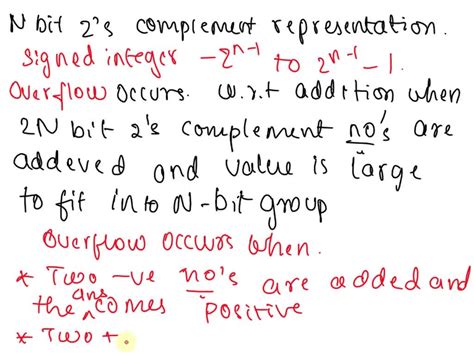 N bit 2's complement representation.
Signed integer -2^{n-1} to 2^{n-1} - 1.
Overflow occurs. w.r.t addition when
2N bit 2's complement no's are
addeved and value is large
to fit into N-bit group
Overflow occurs when.
* Two -ve no's are added and
the ans comes positive
* Two +